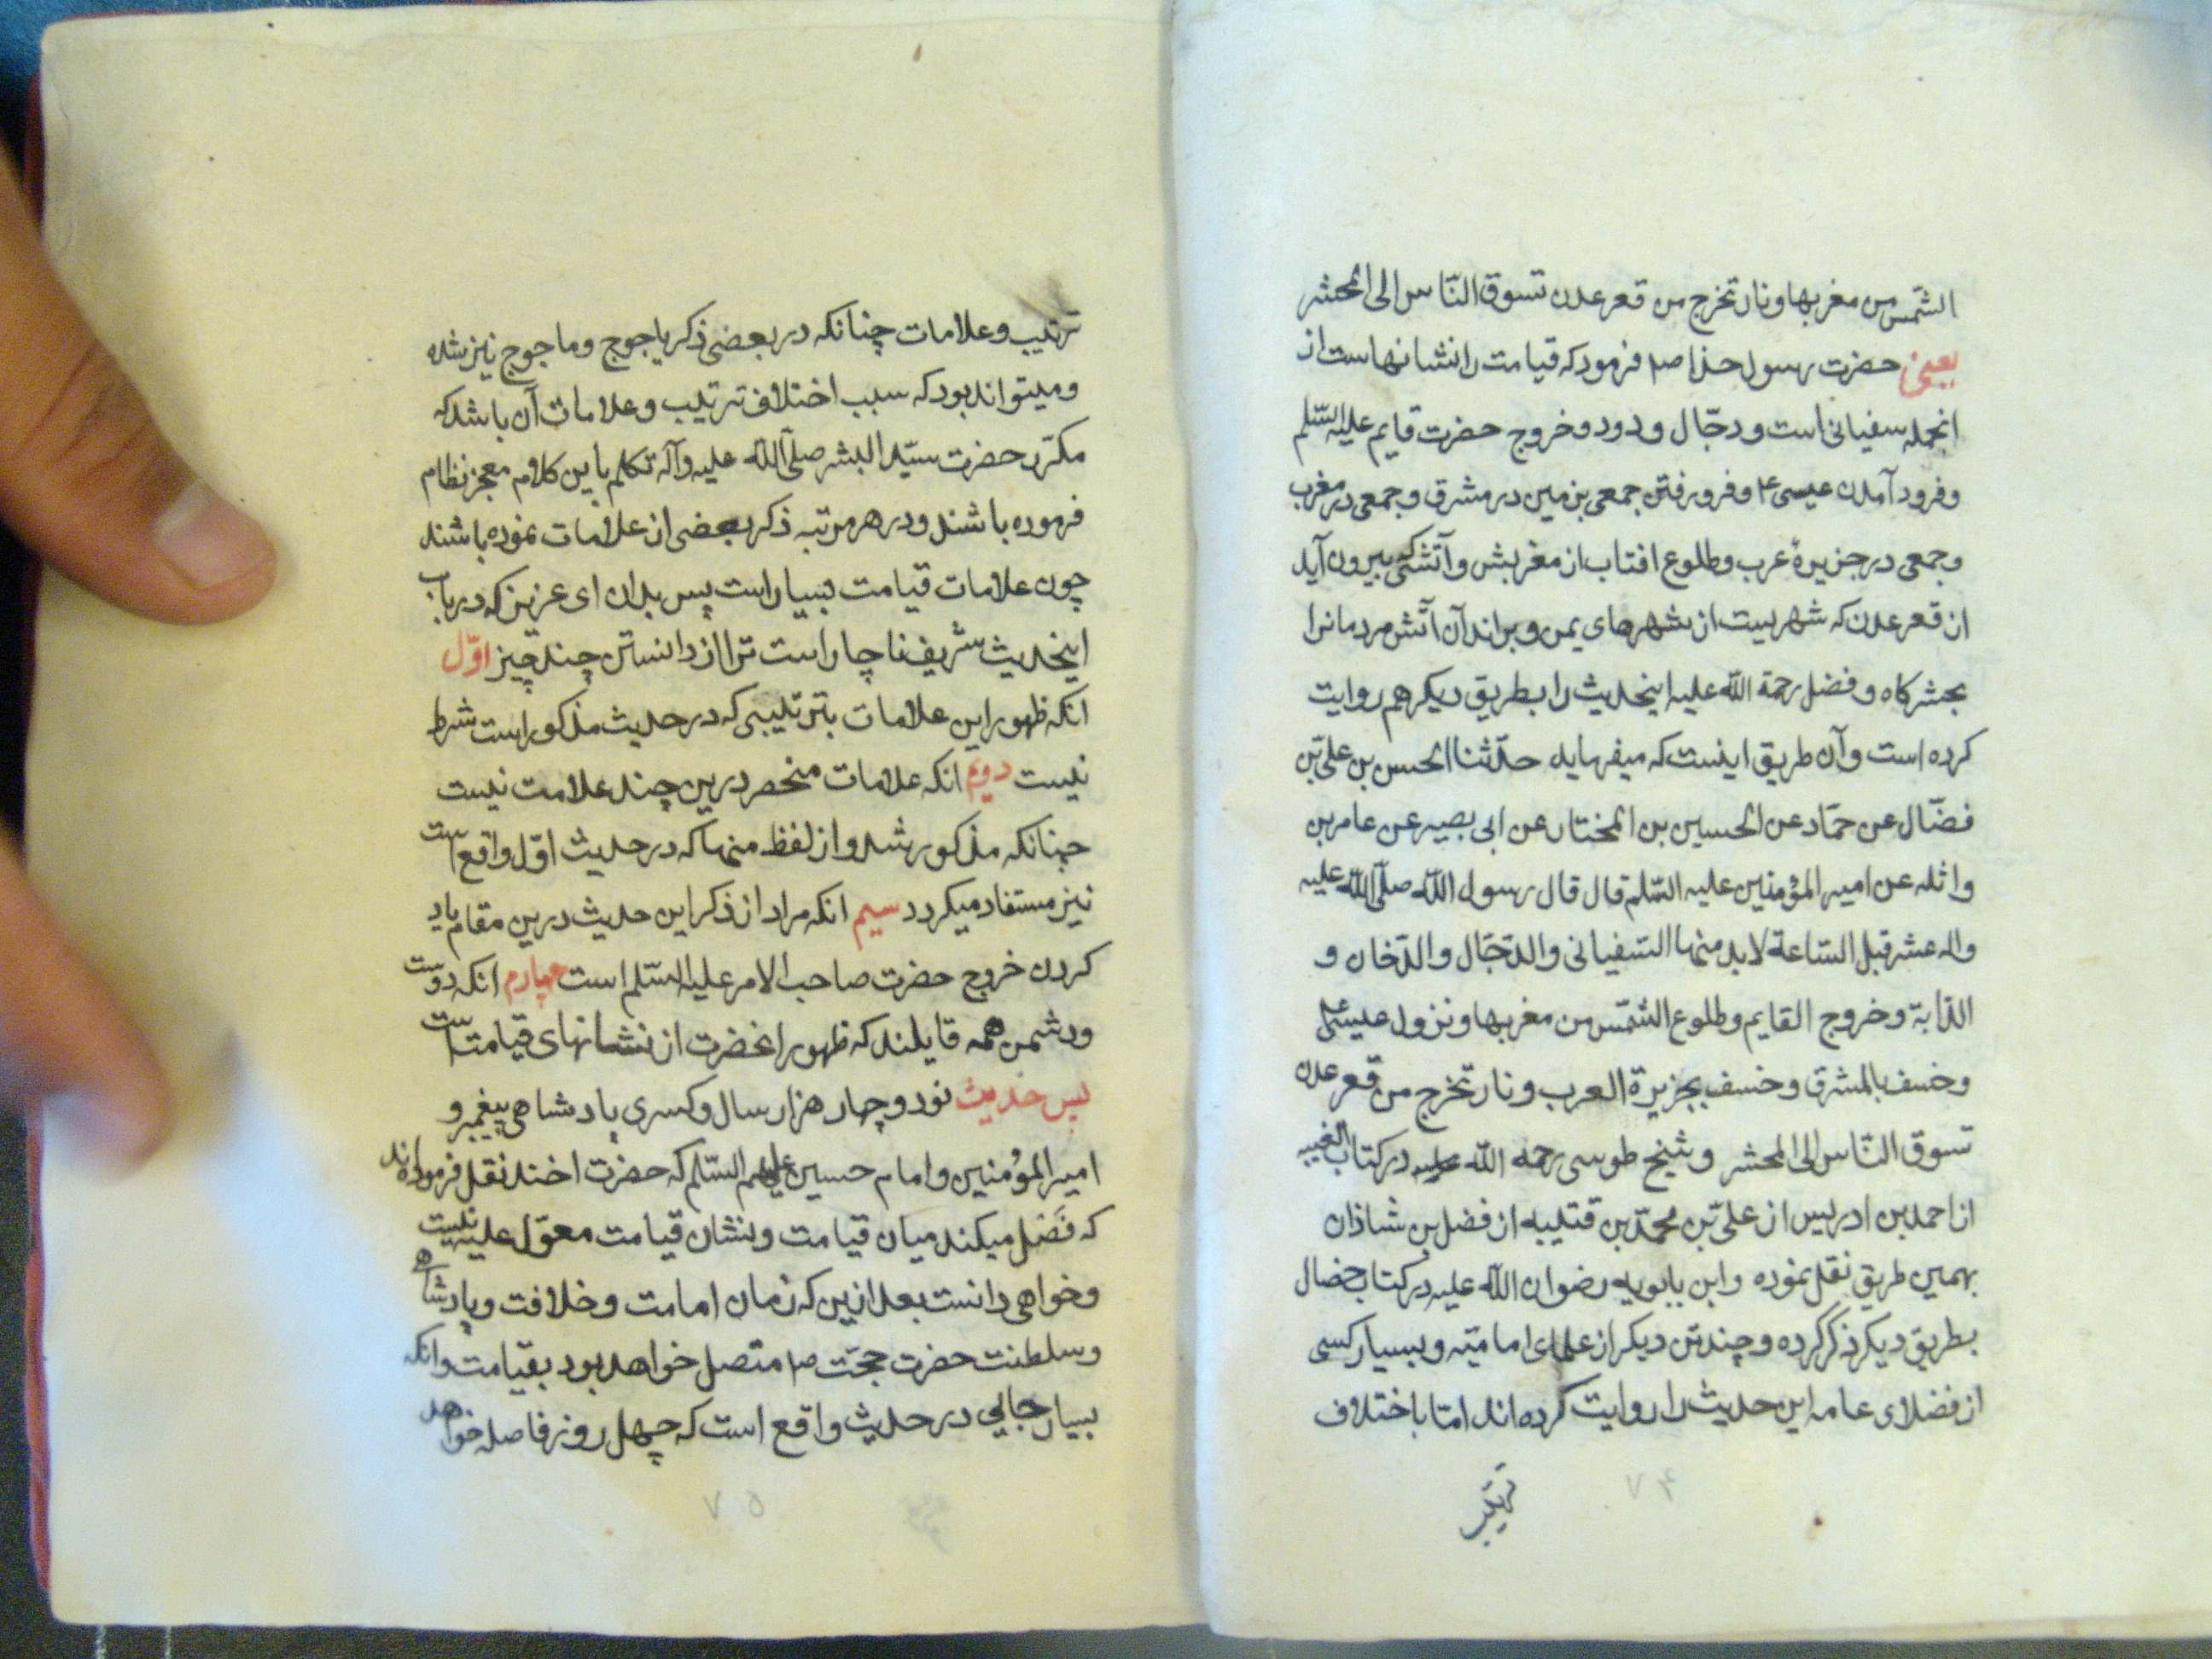 الشمس من مغربها و نار تخرج من قعر عدن تسوق الناس الی المحشر
یعنی حضرت رسول خدا ص فرمود که قیامت را نشانهاست از
انجمله سفیانی است و دجّال و دود و خروج حضرت قایم علیه السّلم
و فرود آمدن عیسی ع و فرو رفتن جمعی بزمین در مشرق و جمعی در مغرب
و جمعی در جزیرهٔ عرب و طلوع افتاب از مغربش و آتشی که بیرون آید
از قعر عدن که شهریست از شهرهای یمن و براند آن آتش مردمانرا
بحشرکاه و فضل رحمة الله علیه اینحدیث را بطریق دیکر هم روایت
کرده است و آن طریق اینست که میفرماید حدّثنا الحسن بن علی بن
فضّال عن حمّاد عن الحسین بن المختار عن ابی بصیر عن عامر بن
واثله عن امیر المؤمنین علیه السّلم قال قال رسول الله صلّی الله علیه
واله عشر قبل السّاعة لابد منها السّفیانی والدّجّال والدّخان و
الدّابة و خروج القایم و طلوع الشمس من مغربها و نزول عیسی ع
و خسف بالمشرق و خسف بجزیرة العرب و نار تخرج من قعر عدن
تسوق النّاس الی المحشر و شیخ طوسی رحمه الله علیه در کتاب الغیبه
از احمد بن ادریس از علی بن محمّد بن قتیبه از فضل بن شاذان
بهمین طریق نقل نموده و ابن بابویه رضوان الله علیه در کتاب خصال
بطریق دیکر ذکر کرده و چند تن دیکر از علمای امامیّه و بسیار کسی
از فضلای عامه این حدیث را روایت کرده‌اند امّا باختلاف
ترتیب
۷۴
ترتیب و علامات چنانکه در بعضی ذکر یاجوج و ماجوج نیز شده
و میتواند بود که سبب اختلاف ترتیب و علامات آن باشد که
مکرّر حضرت سیّد البشر صلّی الله علیه وآله تکلم باین کلام معجز نظام
فرموده باشند و در هر مرتبه ذکر بعضی از علامات نموده باشند
چون علامات قیامت بسیار است پس بدان ای عزیز که در باب
اینحدیث شریف ناچار است ترا از دانستن چند چیز اوّل
انکه ظهور این علامات بترتیبی که در حدیث مذکور است شرط
نیست دویم انکه علامات منحصر درین چند علامت نیست
چنانکه مذکور شد و از لفظ منها که در حدیث اوّل واقع است
نیز مستفاد میکردد سیم انکه مراد از ذکر این حدیث درین مقام یاد
کردن خروج حضرت صاحب الامر علیه السّلم است چهارم انکه دوست
و دشمن همه قایلند که ظهور انحضرت از نشانهای قیامت است
پس حدیث نود و چهار هزار سال و کسری پادشاهی پیغمبر و
امیر المؤمنین و امام حسین علیهم السّلم که حضرت اخند نقل فرموده‌اند
که فَصْل میکند میان قیامت و نشان قیامت معوّل علیه نیست
و خواهی دانست بعد ازین که زمان امامت و خلافت و پادشاهی
و سلطنت حضرت حجّت ص متصل خواهد بود بقیامت و انکه
بسیار جالی در حدیث واقع است که چهل روز فاصله خواهد
۷۵